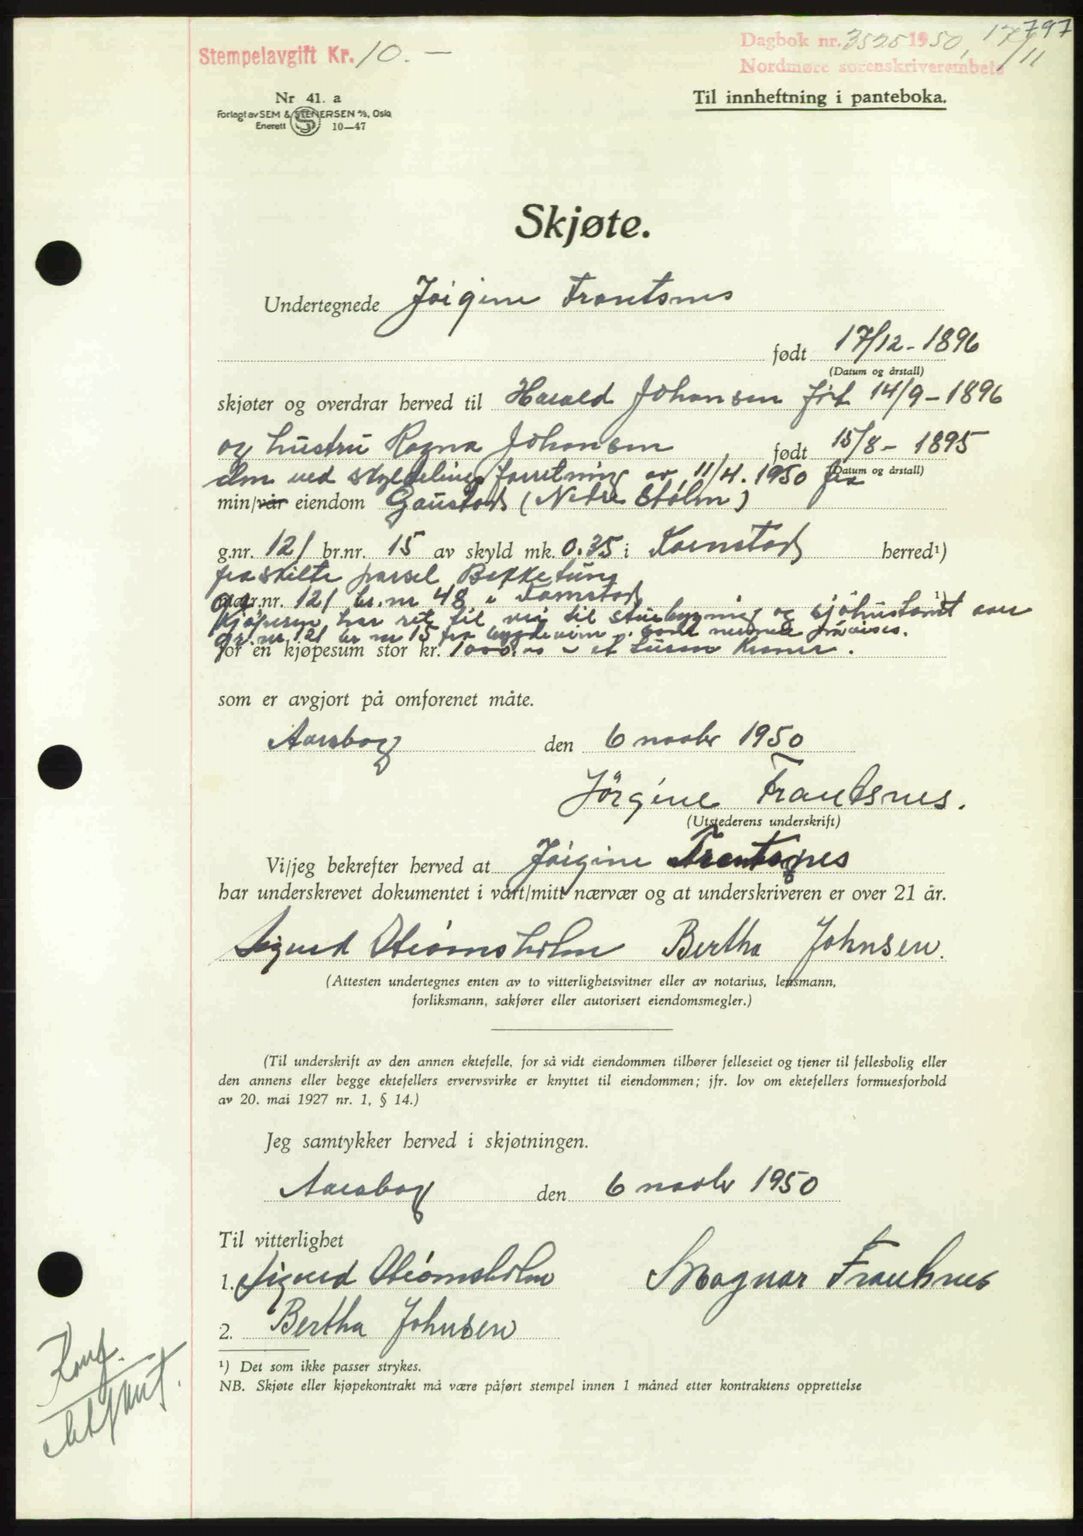 797
Stempelavgift Kr. 10.-
Dagbok nr. 3525 1950, 17/11
Nordmøre sorenskriverembete
Nr 41. a
Forlagt av SEM & STENERSEN A/S, Oslo
Enerett 10—47
Til innheftning i panteboka.
Skjøte.
Undertegnede Jørgine Frantsnes
født 17/12-1896
(Datum og årstall)
skjøter og overdrar herved til Harald Johansen født 14/9-1896
og hustru Ragna Johansen født 15/8-1895
(Datum og årstall)
den ved skyldelings forretning av 11/4. 1950 fra
min/vår eiendom Gaustad (Nedre Stølen)
g.nr. 121 br.nr. 15 av skyld mk. 0.35 i Kornstad herred¹)
fraskilte parsel Bekketung
gr.nr. 121 br.nr 48 i Kornstad ¹)
Kjøperen har ret til vei til stuebygning og sjøhustomt over
gr.nr. 121 br nr 15 fra bygdeveien
for en kjøpesum stor kr. 1000.00 - et tusen Kroner.
som er avgjort på omforenet måte.
den 6 novbr 1950
Jörgine Frantsnes.
(Utstederens underskrift)
Vi/jeg bekrefter herved at Jørgine Frantsnes
har underskrevet dokumentet i vårt/mitt nærvær og at underskriveren er over 21 år.
Sigurd Strømsholm Bertha Johnsen.
(Attesten undertegnes enten av to vitterlighetsvitner eller av notarius, lensmann,
forliksmann, sakfører eller autorisert eiendomsmegler.)
(Til underskrift av den annen ektefelle, for så vidt eiendommen tilhører felleseiet og tjener til fellesbolig eller
den annens eller begge ektefellers ervervsvirke er knyttet til eiendommen; jfr. lov om ektefellers formuesforhold
av 20. mai 1927 nr. 1, § 14.)
Jeg samtykker herved i skjøtningen.
den 6 novbr 1950
Til vitterlighet
1. Sigurd Strømsholm Magnar Frantsnes
2. Bertha Johnsen
¹) Det som ikke passer strykes.
NB. Skjøte eller kjøpekontrakt må være påført stempel innen 1 måned etter kontraktens opprettelse
Konf.